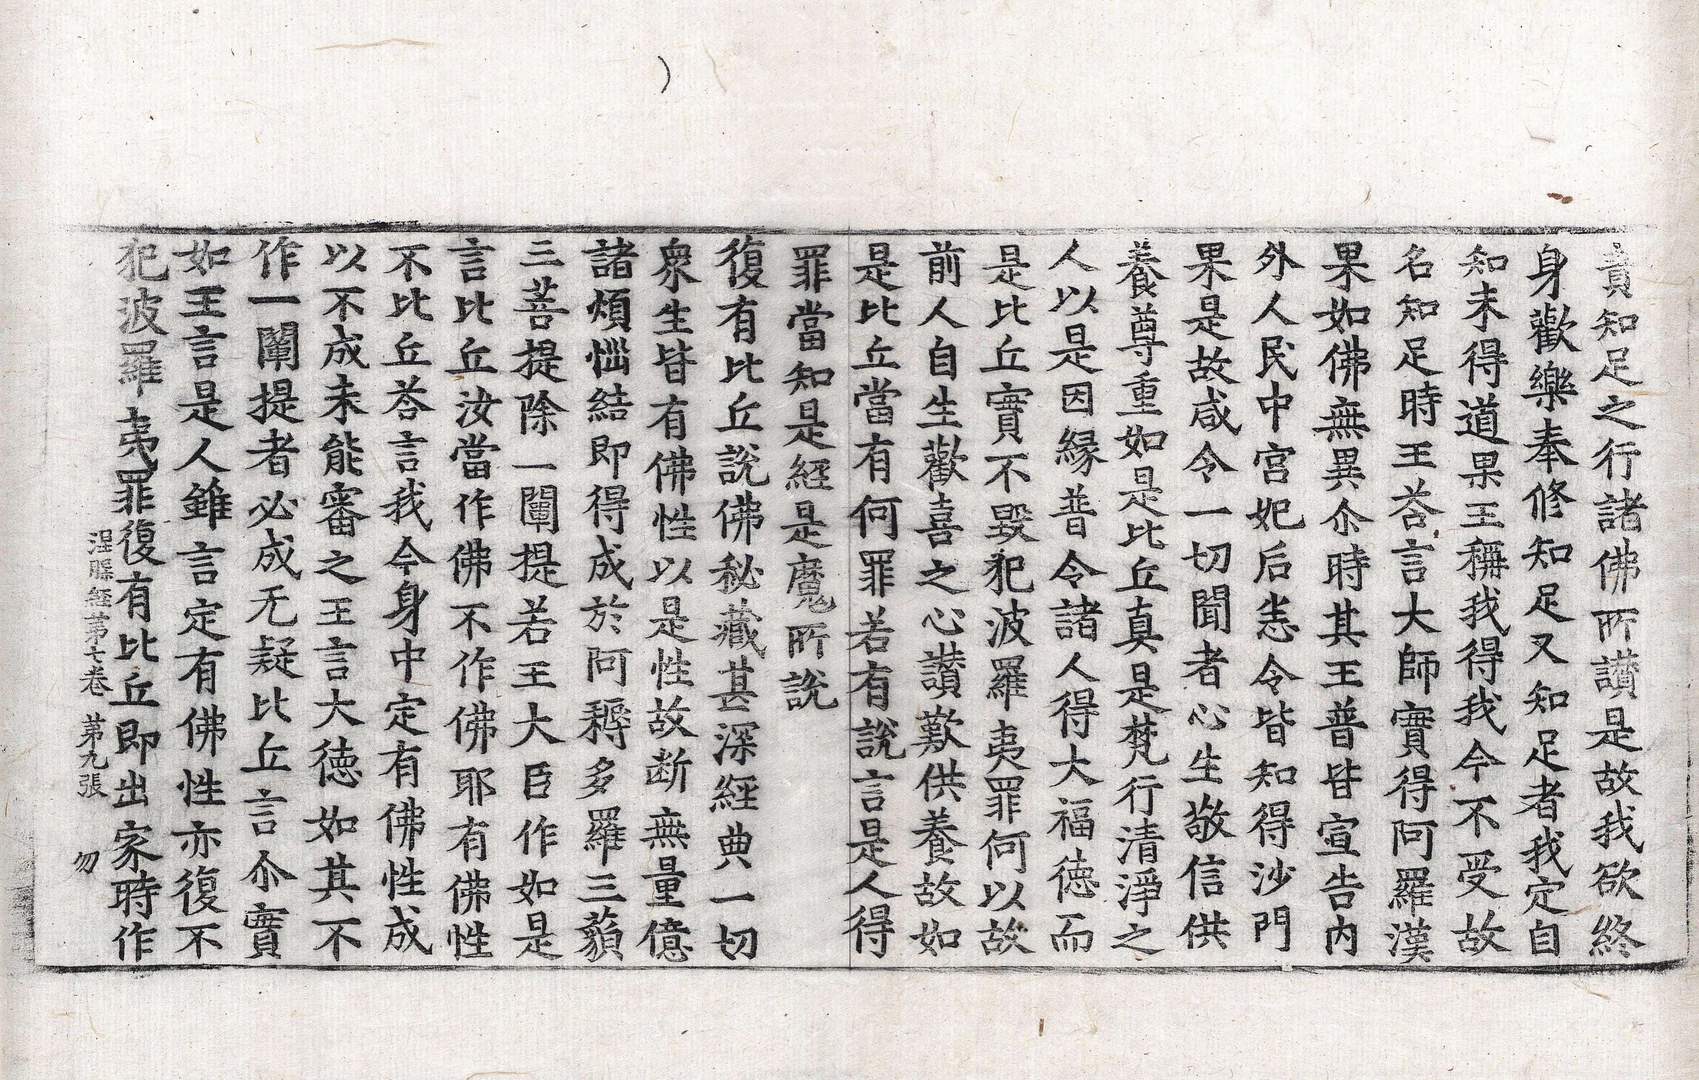 責知足之行諸佛所讃是故我欲終
身歡樂奉修知足又知足者我定自
知未得道果王稱我得我今不受故
名知足時王荅言大師實得阿羅漢
果如佛無異尒時其王普皆宣告內
外人民中宮妃后悉令皆知得沙門
果是故咸令一切聞者心生敬信供
養尊重如是比丘真是梵行清淨之
人以是因緣普令諸人得大福德而
是比丘實不毀犯波羅夷罪何以故
前人自生歡喜之心讃歎供養故如
是比丘當有何罪若有說言是人得
罪當知是經是魔所說
復有比丘說佛秘藏甚深經典一切
衆生皆有佛性以是性故断無量億
諸煩惱結即得成於阿耨多羅三藐
三菩提除一闡提若王大臣作如是
言比丘汝當作佛不作佛耶有佛性
不比丘荅言我今身中定有佛性成
以不成未能審之王言大德如其不
作一闡提者必成无疑比丘言尒實
如王言是人雖言定有佛性亦復不
犯波羅夷罪復有比丘即出家時作
涅槃經第七卷 第九張 勿